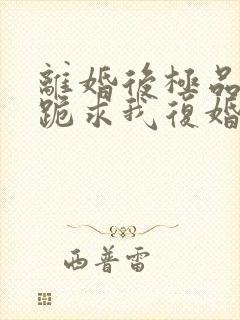 離婚後極品
跪求我復婚
西普雷